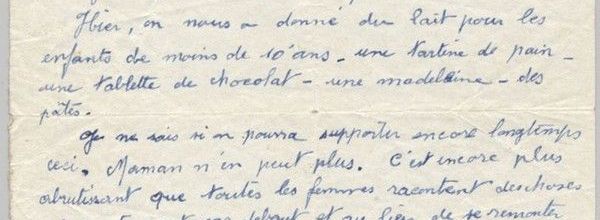 Hier, on nous a donné du lait pour les
enfants de moins de 10 ans - une tartine de pain -
une tablette de chocolat - une madeleine - des
pâtes.
Je ne sais si on pourra supporter encore longtemps
ceci. Maman n'en peut plus. C'est encore plus
abrutissant que toutes les femmes racontent des choses
et au lieu de se remonter